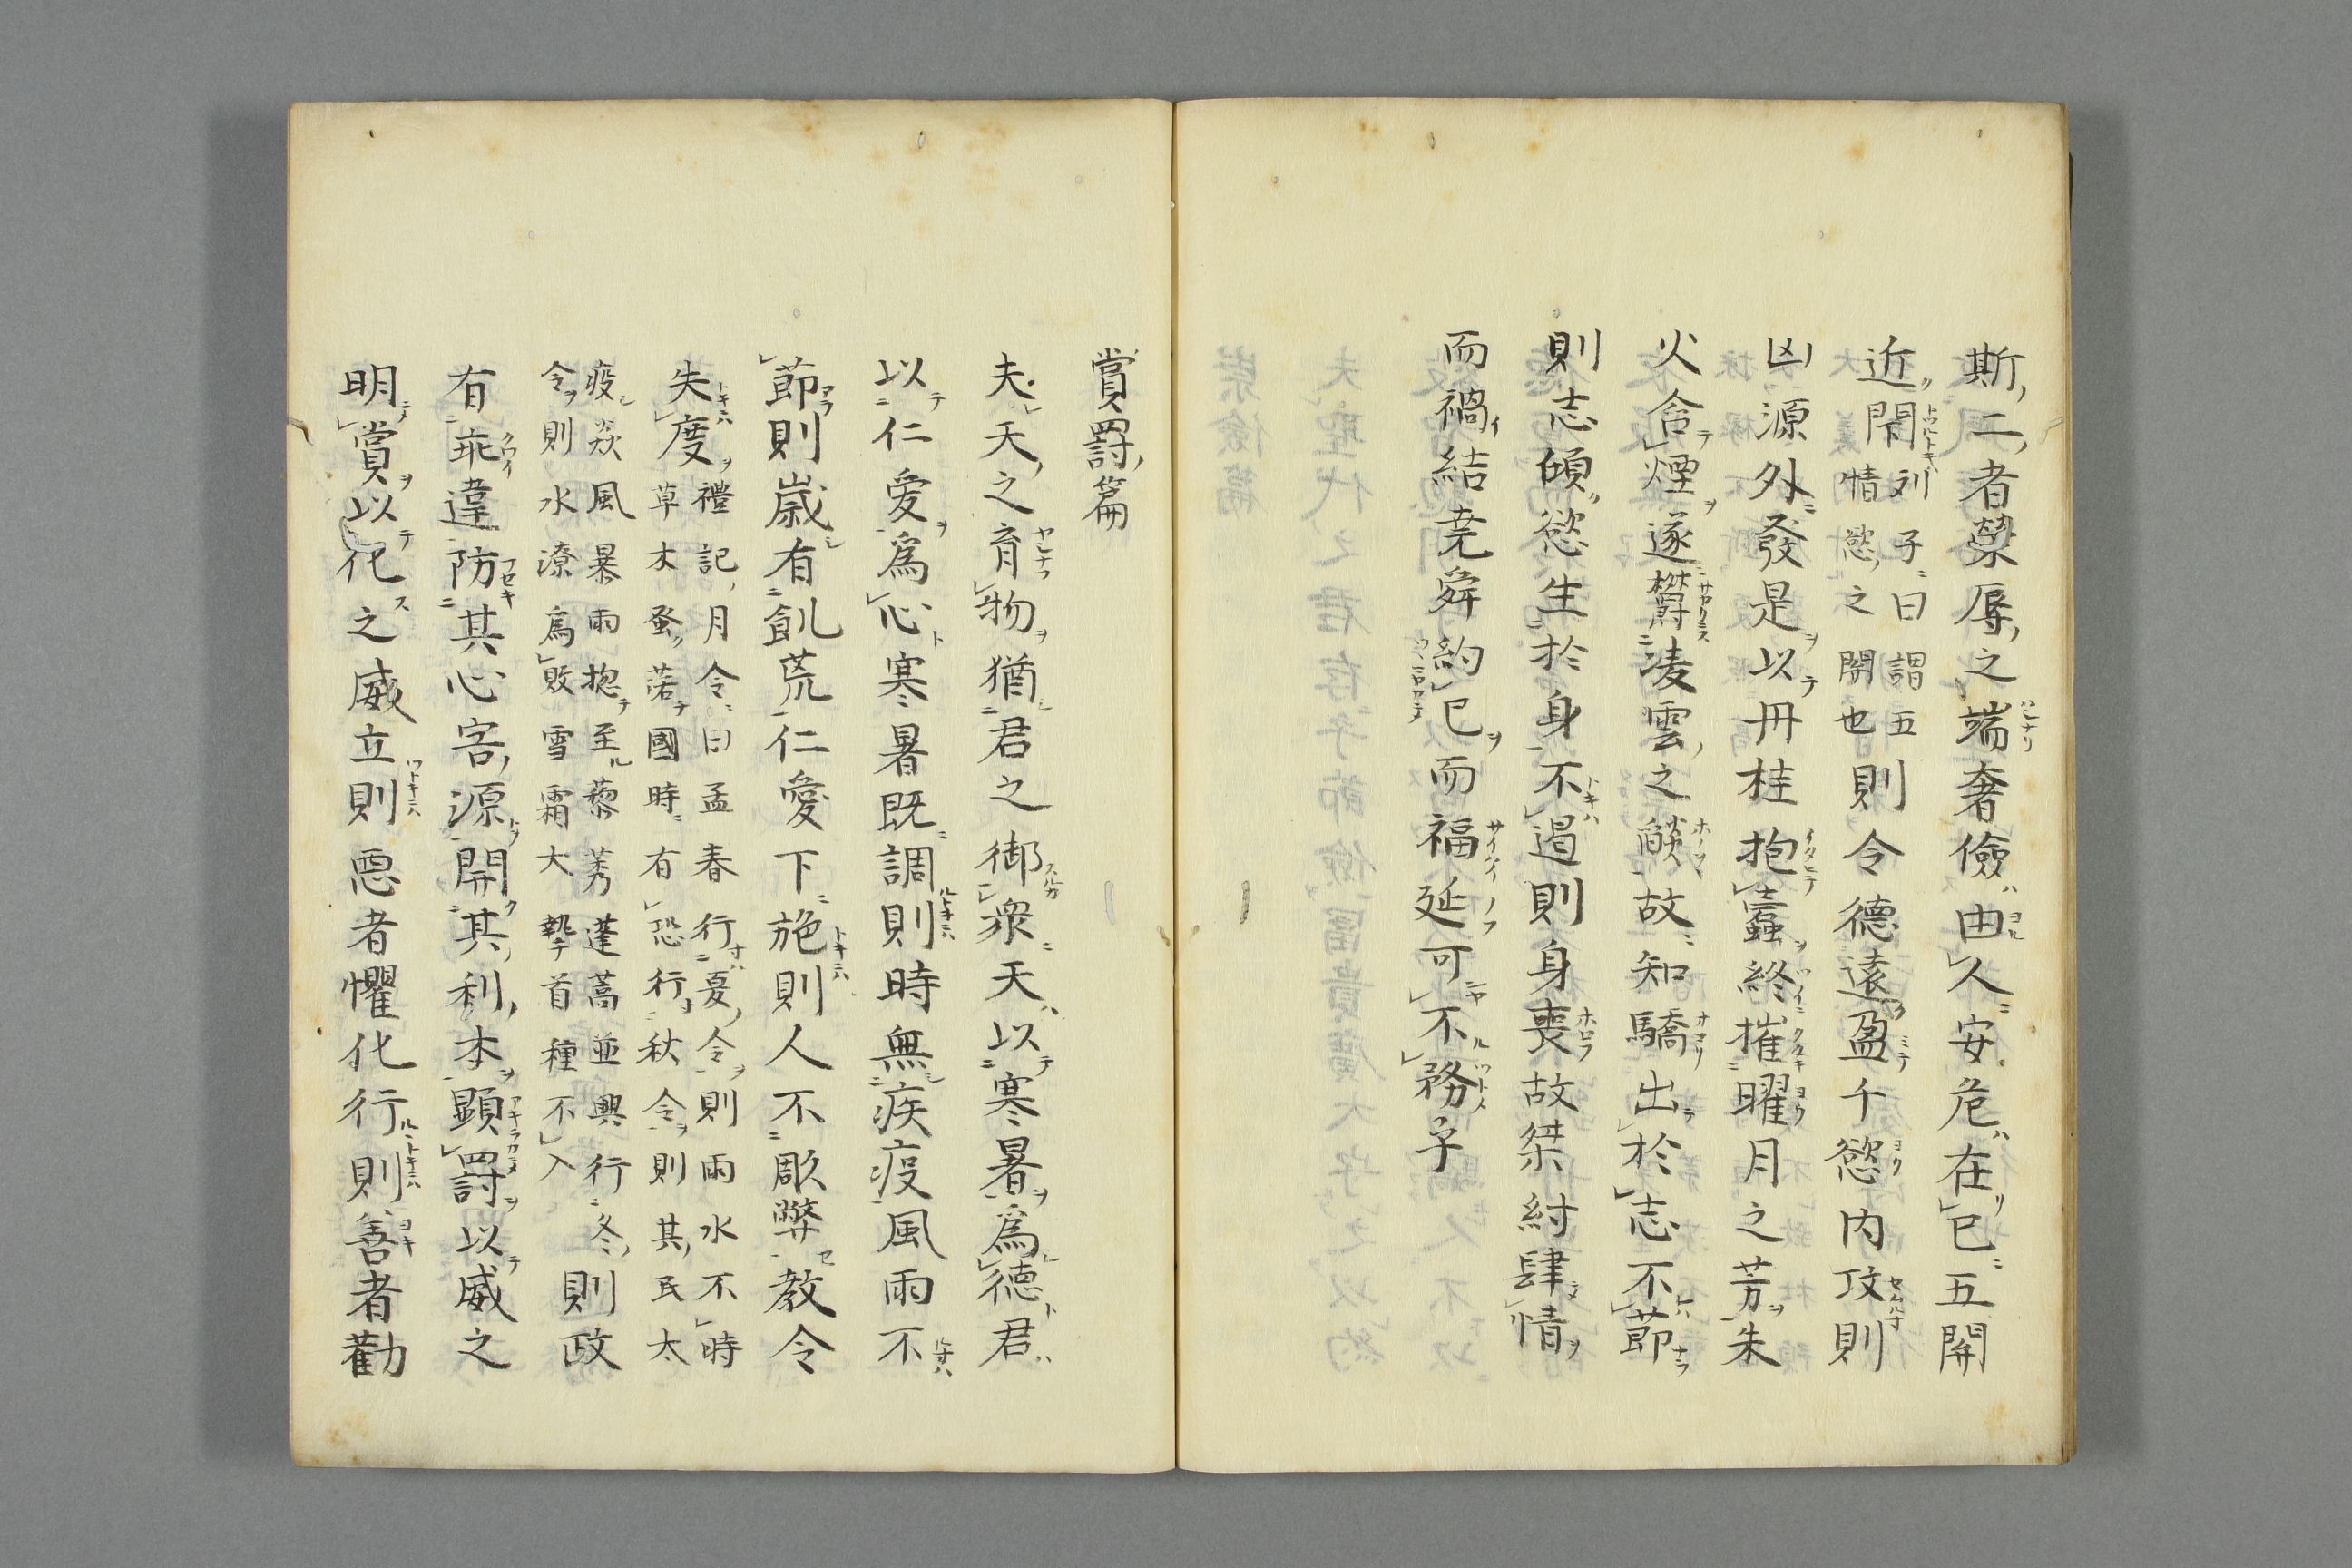 斯二者榮辱之端奢儉由人安危在己五開
近閇列子曰謂五
情慾之開也則令德遠盈千慾内攻則
凶源外發是以丹桂抱蠹終摧曜月之芳朱
火含煙遂欝凌雲之燄故知驕出於志不節
則志傾慾生於身不遏則身喪故桀紂肆情
而禍結尭舜約己而福延可不務乎
賞罸篇
夫天之育物猶君之御衆天以寒暑爲德君
以仁愛爲心寒暑既調則時無疾疫風雨不
節則嵗有飢荒仁愛下施則人不彫弊教令
失度禮記月令曰孟春行夏令則雨水不時
草木蚤落國時有恐行秋令則其民太
疫猋風暴雨摠至藜莠蓬蒿並興行冬
令則水潦爲敗雪霜大摯首種不入則政
有乖違防其心害源開其利本顕罸以威之
明賞以化之威立則悪者懼化行則善者勸